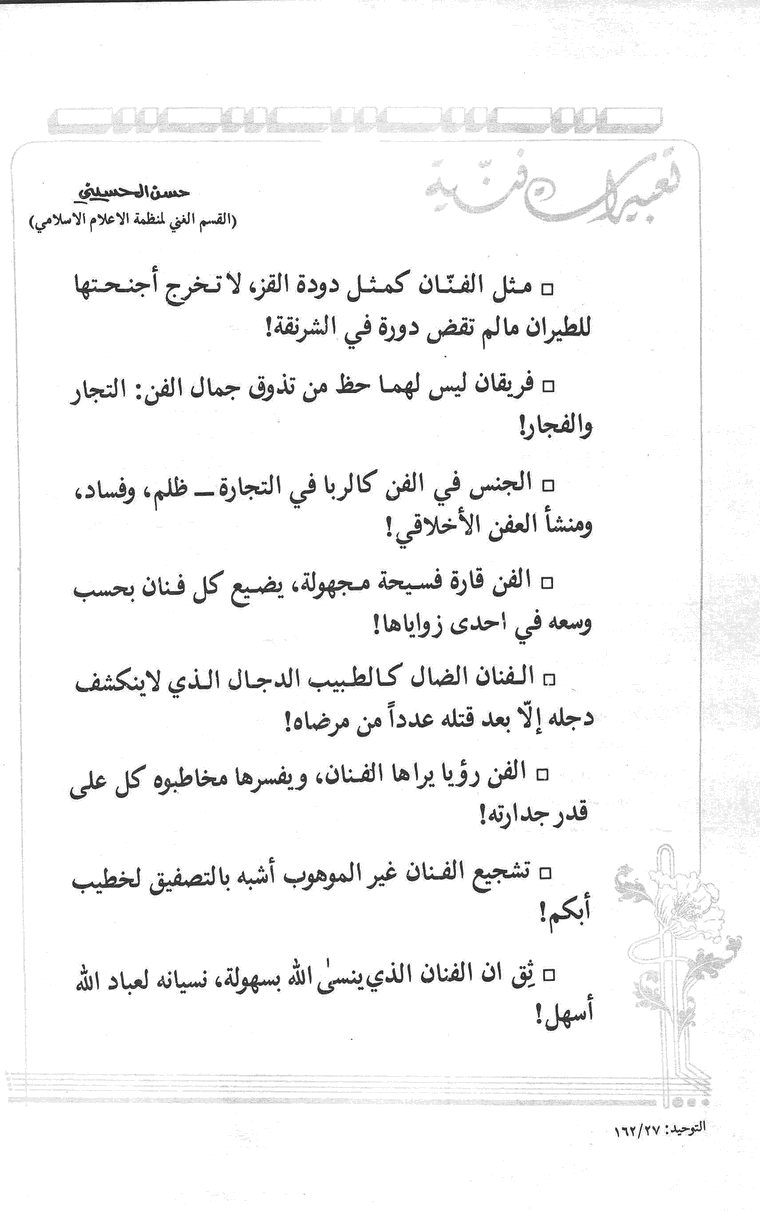 تعبيرات فنّية
حسن الحسيني
(القسم الغني لمنظمة الاعلام الاسلامي)
□ مثل الفنّان كمثل دودة القز، لا تخرج أجنحتها
للطيران مالم تقض دورة في الشرنقة!
□ فريقان ليس لهما حظ من تذوق جمال الفن: التجار
والفجار!
□ الجنس في الفن كالربا في التجارة ــ ظلم، وفساد،
ومنشأ العفن الأخلاقي!
□ الفن قارة فسيحة مجهولة، يضيع كل فنان بحسب
وسعه في احدى زواياها!
□ الفنان الضال كالطبيب الدجال الذي لاينكشف
دجله إلّا بعد قتله عدداً من مرضاه!
□ الفن رؤيا يراها الفنان، ويفسرها مخاطبوه كل على
قدر جدارته!
□ تشجيع الفنان غير الموهوب أشبه بالتصفيق لخطيب
أبكم!
□ ثِق ان الفنان الذي ينسىٰ الله بسهولة، نسيانه لعباد الله
أسهل!
التوحيد: ١٦٢/٢٧